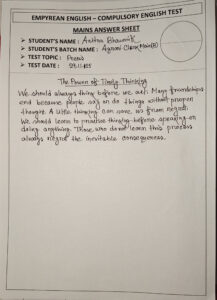 EMPYREAN ENGLISH – COMPULSORY ENGLISH TEST
MAINS ANSWER SHEET
➤ STUDENT'S NAME :
➤ STUDENT'S BATCH NAME :
➤ TEST TOPIC : Precis
➤ TEST DATE :
The Power of Timely Thinking
We should always think before we act. Many friendships
end because people say or do things without proper
thought. A little thinking can save us from regret.
We should learn to practise thinking before speaking or
doing anything. Those who do not learn this process
always regret the inevitable consequences.